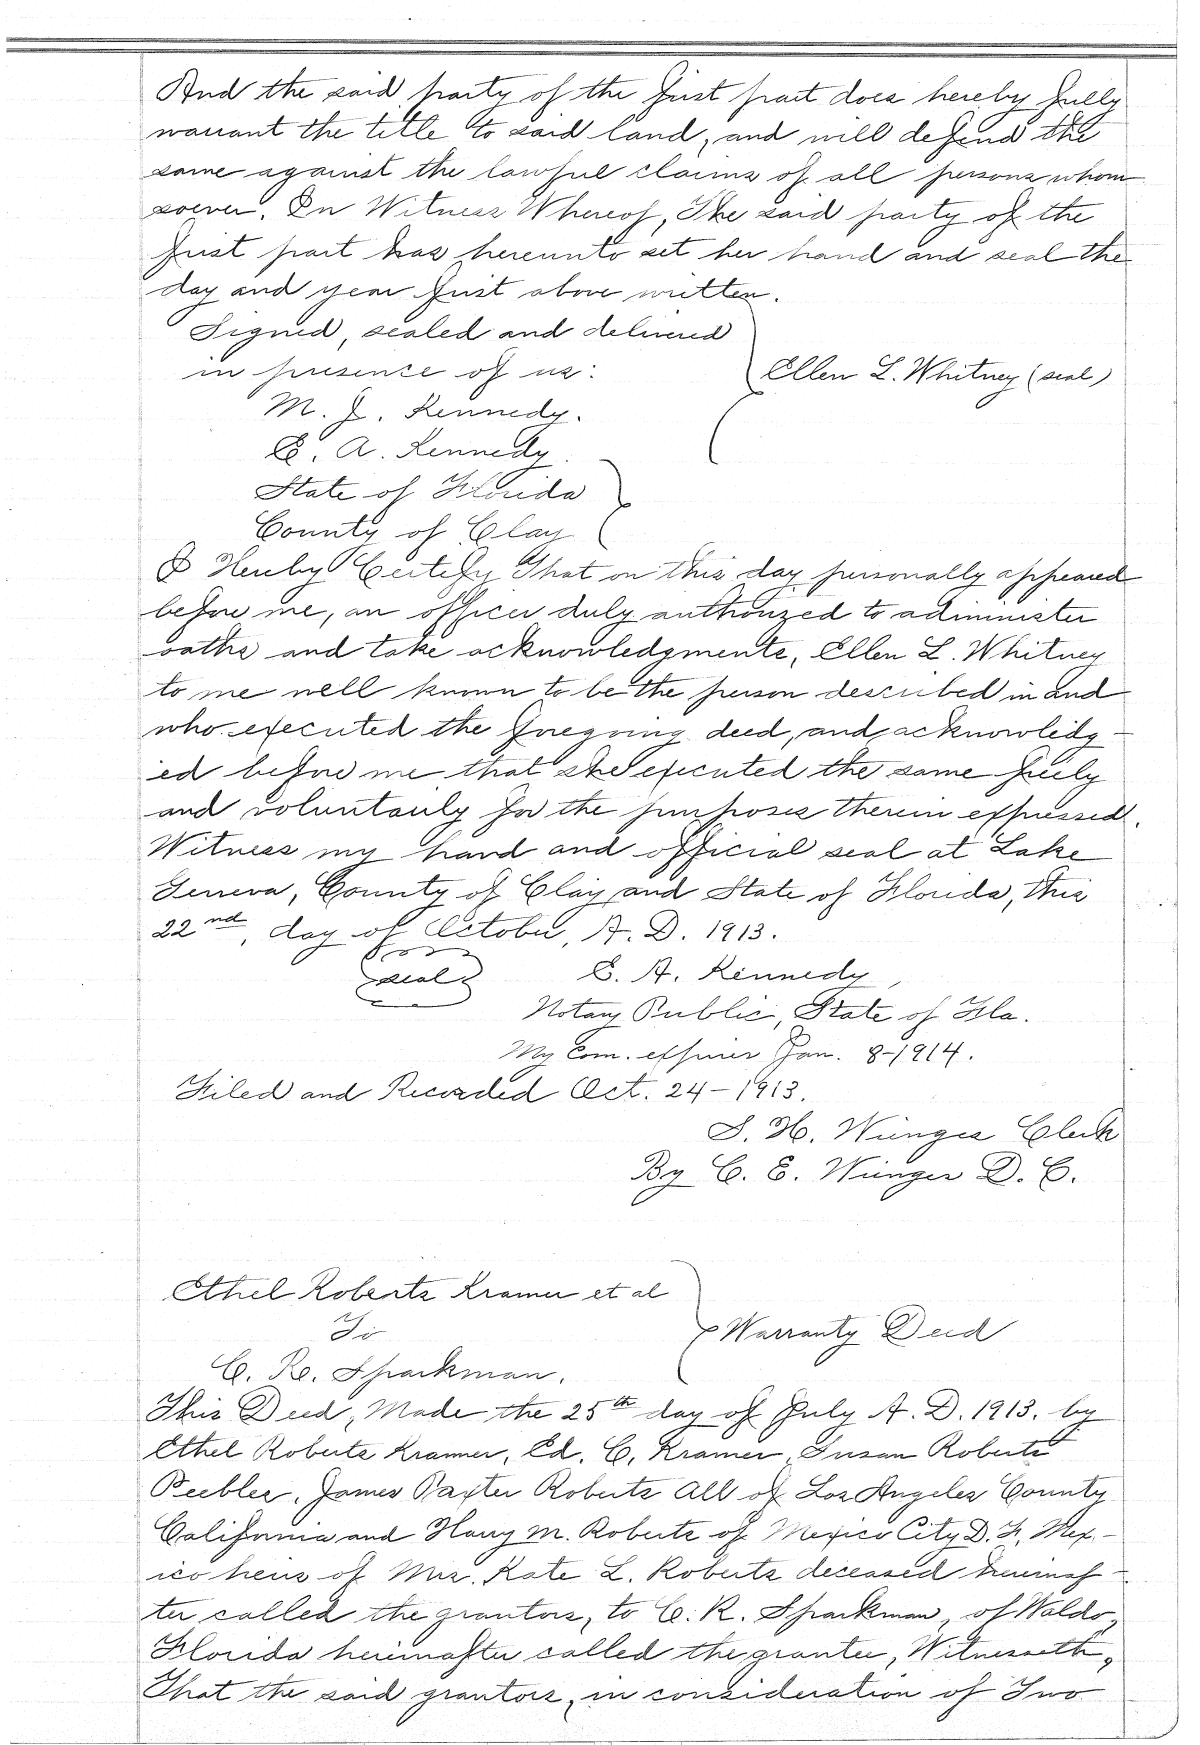 And the said party of the first part does hereby fully
warrant the title to said land, and will defend the
same against the lawful claims of all persons whom
soever. In Witness Whereof, The said party of the
first part has hereunto set her hand and seal the
day and year first above written.
Signed, sealed and delivered
in presence of us:
Ellen L. Whitney (seal)
M. J. Kennedy.
E. A. Kennedy.
State of Florida
County of Clay
I Hereby Certify That on this day personally appeared
before me, an officer duly authorized to administer
oaths and take acknowledgments, Ellen L. Whitney
to me well known to be the person described in and
who executed the foregoing deed, and acknowledg-
ed before me that she executed the same freely
and voluntarily for the purposes therein expressed.
Witness my hand and official seal at Lake
Geneva, County of Clay and State of Florida, this
22nd, day of October, A. D. 1913.
seal E. A. Kennedy,
Notary Public, State of Fla.
My Com. expires Jan. 8-1914.
Filed and Recorded Oct. 24-1913.
S. H. Wienges Clerk
By C. E. Wienges D. C.
Ethel Roberts Kramer et al
To
Warranty Deed
C. R. Sparkman.
This Deed, Made the 25th day of July A. D. 1913. by
Ethel Roberts Kramer, Ed. C. Kramer, Susan Roberts
Peebles, James Paxter Roberts All of Los Angeles County
California and Harry M. Roberts of Mexico City D. F. Mex-
ico heirs of Mrs. Kate L. Roberts deceased hereinaf-
ter called the grantors, to C. R. Sparkman, of Waldo,
Florida hereinafter called the grantee, Witnesseth,
That the said grantors, in consideration of Two